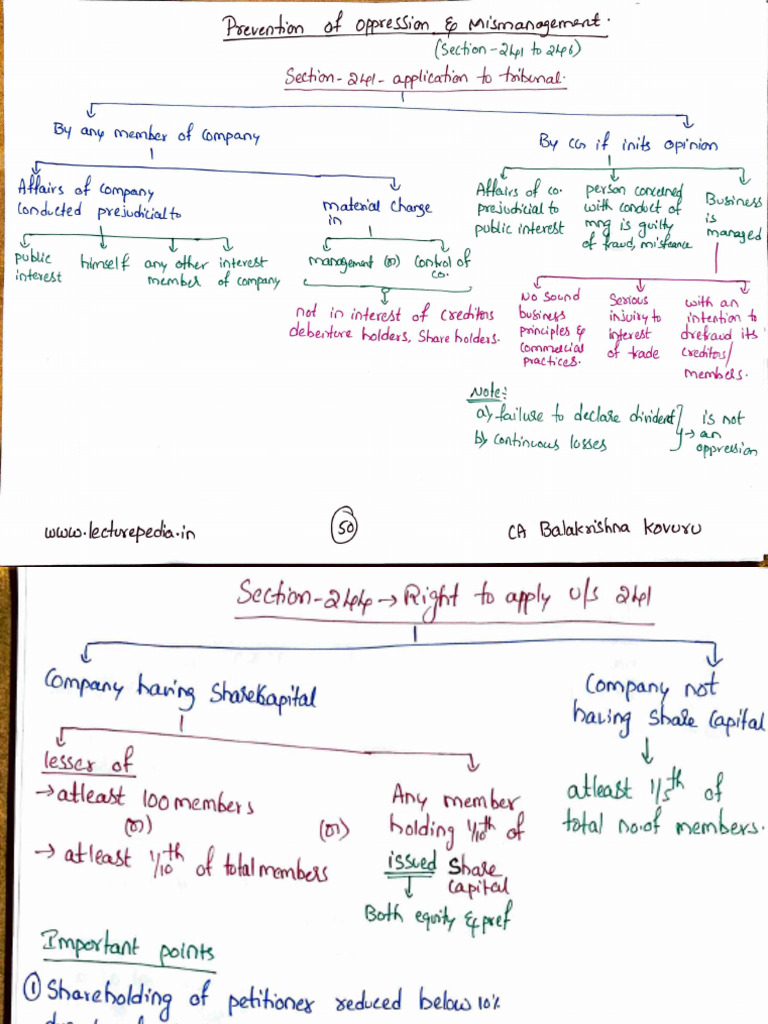 Prevention of oppression & Mismanagement.
(Section-241 to 246)
Section-241- application to tribunal.
By any member of company
By CG if in its opinion
Affairs of company
conducted prejudicial to
public
interest
himself
any other
member
interest
of company
material change
in
management (or) control of
co.
not in interest of creditors
debenture holders, Share holders.
Affairs of co.
prejudicial to
public interest
person concerned
with conduct of
mng is guilty
of fraud, misfeance
Business
is
managed
No sound
business
principles &
commercial
practices.
Serious
injuiry to
interest
of trade
with an
intention to
drefraud its
creditors/
members.
Note:-
a) failure to declare dividend
b) continuous losses
→ is not
an
oppression
www.lecturepedia.in
50
CA Balakrishna Kovuru
Section-244 → Right to apply u/s 241
Company having Share Kapital
lesser of
→ atleast 100 members
(or)
→ atleast 1/10th of total members
(or)
Any member
holding 1/10th of
issued Share
capital
Both equity & pref
Company not
having share capital
atleast 1/5th of
total no. of members.
Important points
① Shareholding of petitioner reduced below 10%